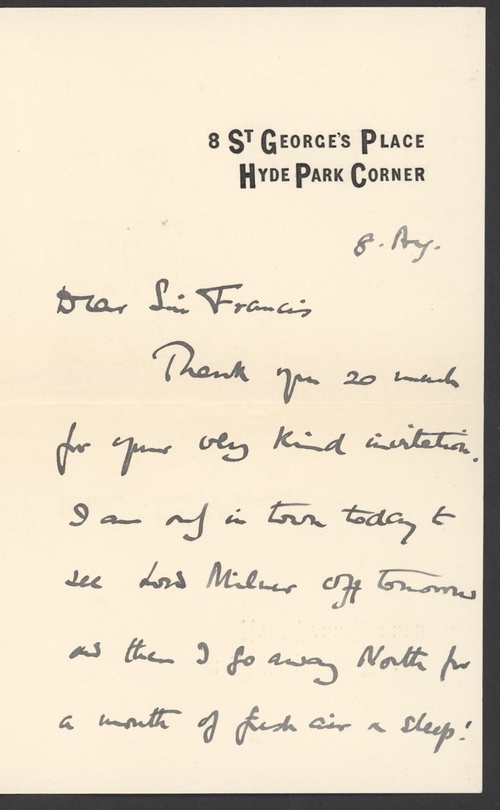 8 ST GEORGE'S PLACE
HYDE PARK CORNER
8. Aug.
Dear Sir Francis
Thank you so much
for your very kind invitation.
I am only in town today to
see Lord Milner off tomorrow
and then I go away North for
a month of fresh air & sleep!